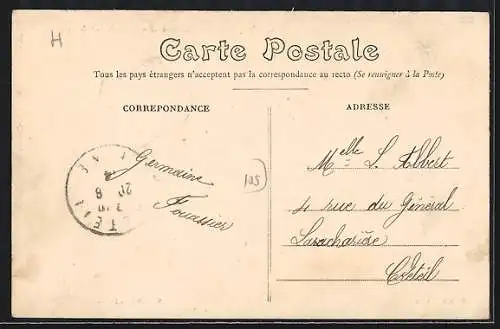 H
Carte Postale
Tous les pays étrangers n'acceptent pas la correspondance au recto (Se renseigner à la Poste)
CORREPONDANCE
ADRESSE
Germaine
Fouassier
105
Melle L. Albert
4 rue du Général
Saracharide
Créteil